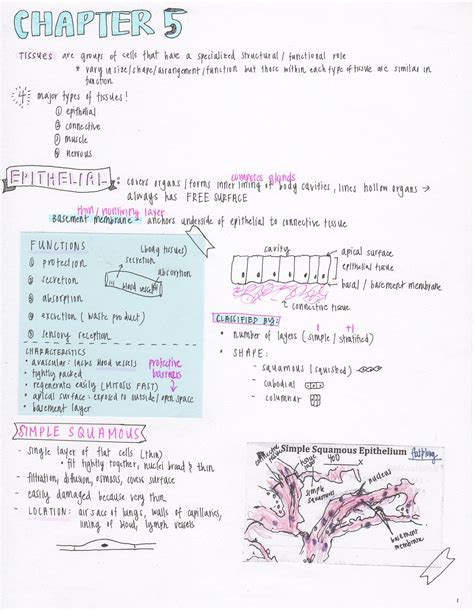 CHAPTER 5
TISSUES are groups of cells that have a specialized structural/functional role
* vary in size/shape/arrangement/function but those within each type of tissue are similar in
function
4 major types of tissues!
① epithelial
② connective
③ muscle
④ nervous
EPITHELIAL: covers organs/forms inner lining of body cavities, lines hollow organs →
composes glands
always has FREE SURFACE
thin/nonliving layer
basement membrane - anchors underside of epithelial to connective tissue
FUNCTIONS
① protection
② secretion
③ absorption
④ excretion (waste product)
⑤ sensory reception
(body tissues)
secretion
absorption
blood vessel
CHARACTERISTICS
• avascular: lacks blood vessels
• tightly packed
• regenerates easily (MITOSIS FAST)
• apical surface: exposed to outside/open space
• basement layer
protective
barriers
cavity
apical surface
epithelial tissue
basal/basement membrane
connective tissue
CLASSIFIED BY:
1 +1
• number of layers (simple/stratified)
• SHAPE:
- squamous (squished)
- cubodial
- columnar
SIMPLE SQUAMOUS
- single layer of flat cells (thin)
fit tightly together, nuclei broad & thin
- filtration, diffusion, osmosis, covers surface
- easily damaged because very thin
- LOCATION: air sacs of lungs, walls of capillaries,
lining of blood, lymph vessels
Simple Squamous Epithelium
400 x
simple
squamous
nucleus
basement
membrane
1